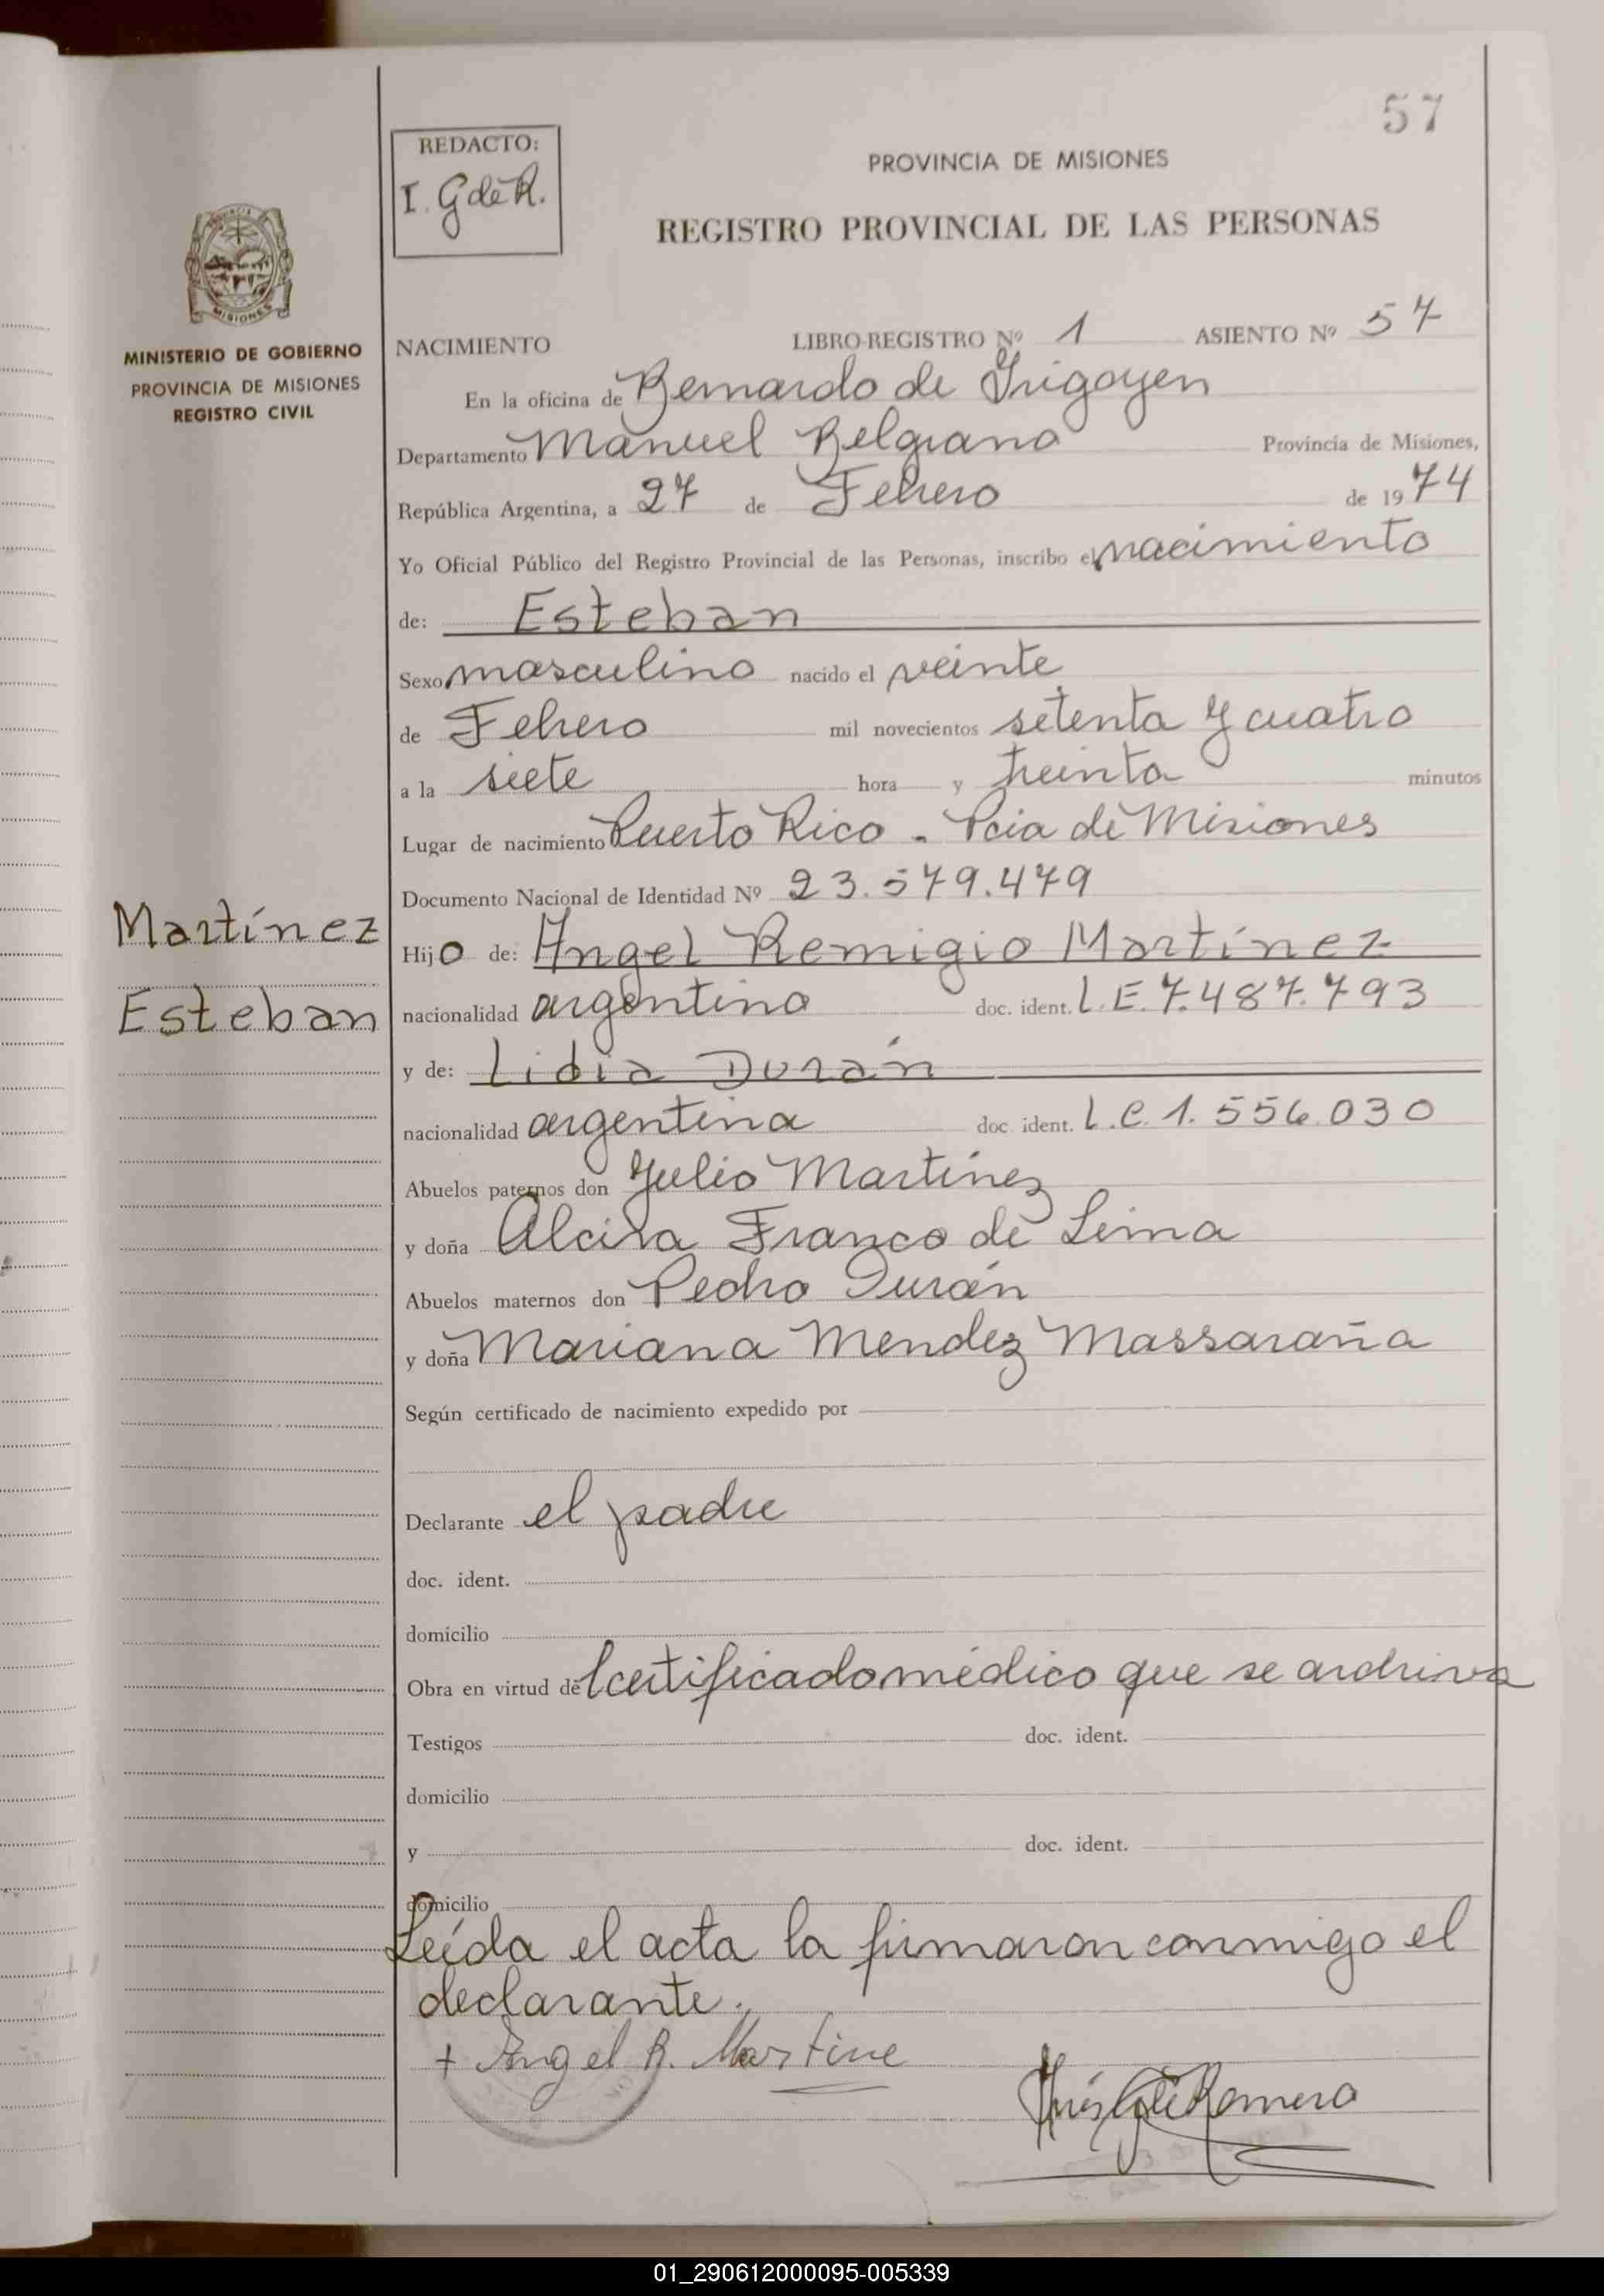 57
REDACTO:
I. G de R.
PROVINCIA DE MISIONES
REGISTRO PROVINCIAL DE LAS PERSONAS
MISIONES
MINISTERIO DE GOBIERNO
PROVINCIA DE MISIONES
REGISTRO CIVIL
NACIMIENTO LIBRO-REGISTRO Nº 1 ASIENTO Nº 57
En la oficina de Bernardo de Irigoyen
Departamento Manuel Belgrano Provincia de Misiones,
República Argentina, a 27 de Febrero de 1974
Yo Oficial Público del Registro Provincial de las Personas, inscribo el nacimiento
de: Esteban
Sexo masculino nacido el veinte
de Febrero mil novecientos setenta y cuatro
a la siete hora y treinta minutos
Lugar de nacimiento Puerto Rico - Pcia de Misiones
Documento Nacional de Identidad Nº 23.579.479
Martínez
Hijo de: Angel Remigio Martínez
Esteban
nacionalidad argentino doc. ident. L.E. 7.487.793
y de: Lidia Durán
nacionalidad argentina doc. ident. L.C. 1.556.030
Abuelos paternos don Julio Martínez
y doña Alcira Franco de Lima
Abuelos maternos don Pedro Durán
y doña Mariana Mendez Massaraña
Según certificado de nacimiento expedido por
Declarante el padre
doc. ident.
domicilio
Obra en virtud del certificado médico que se archiva
Testigos doc. ident.
domicilio
y doc. ident.
domicilio
Leída el acta la firmaron conmigo el
declarante.
+ Angel R. Martine
Inés G de Romero
01_290612000095-005339